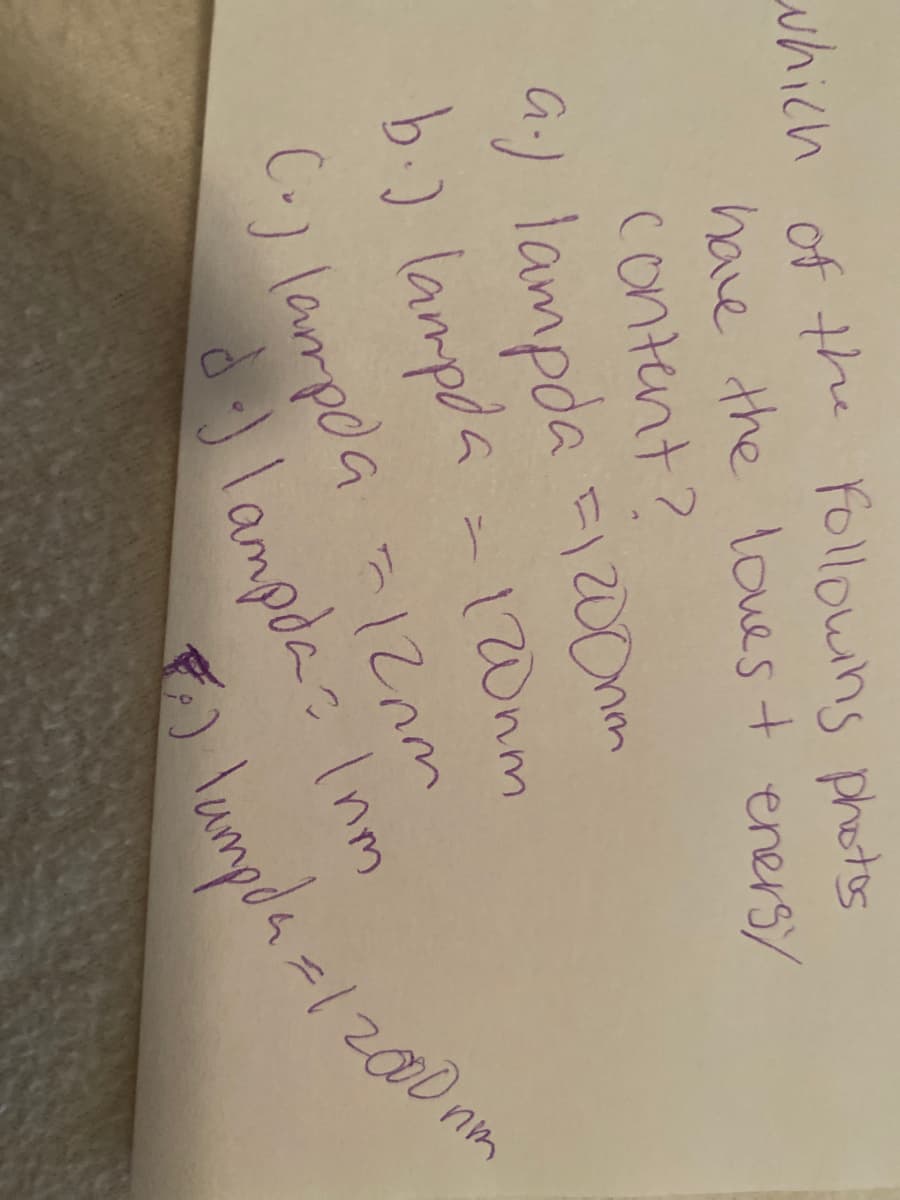 which of the following photos
have the lowest energy
content?
a.) lampda = 1200nm
b.) lampda = 120nm
c.) lampda = 12nm
d.) lampda = 1nm
lampda = 12000nm